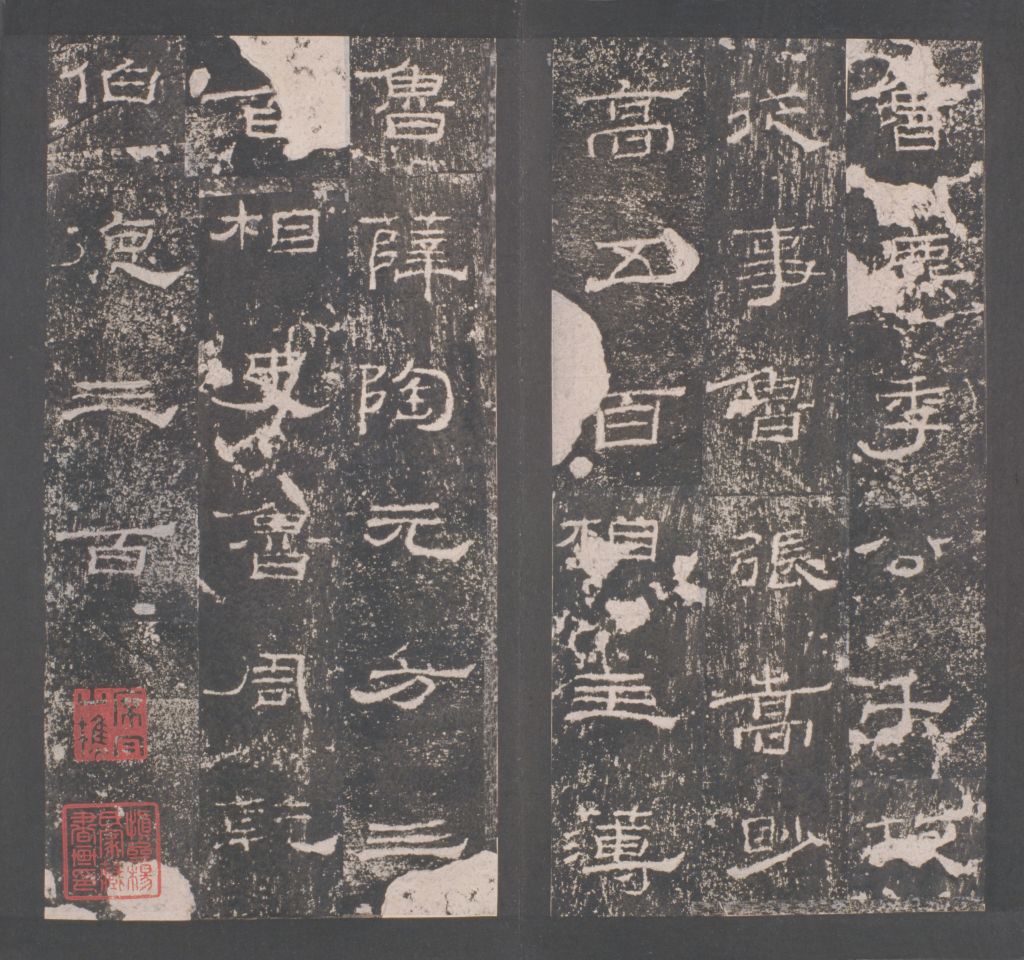 魯麃季公千故
從事魯張嵩眇
高五百相主簿
魯薛陶元方三
百相史魯周乾
伯德三百